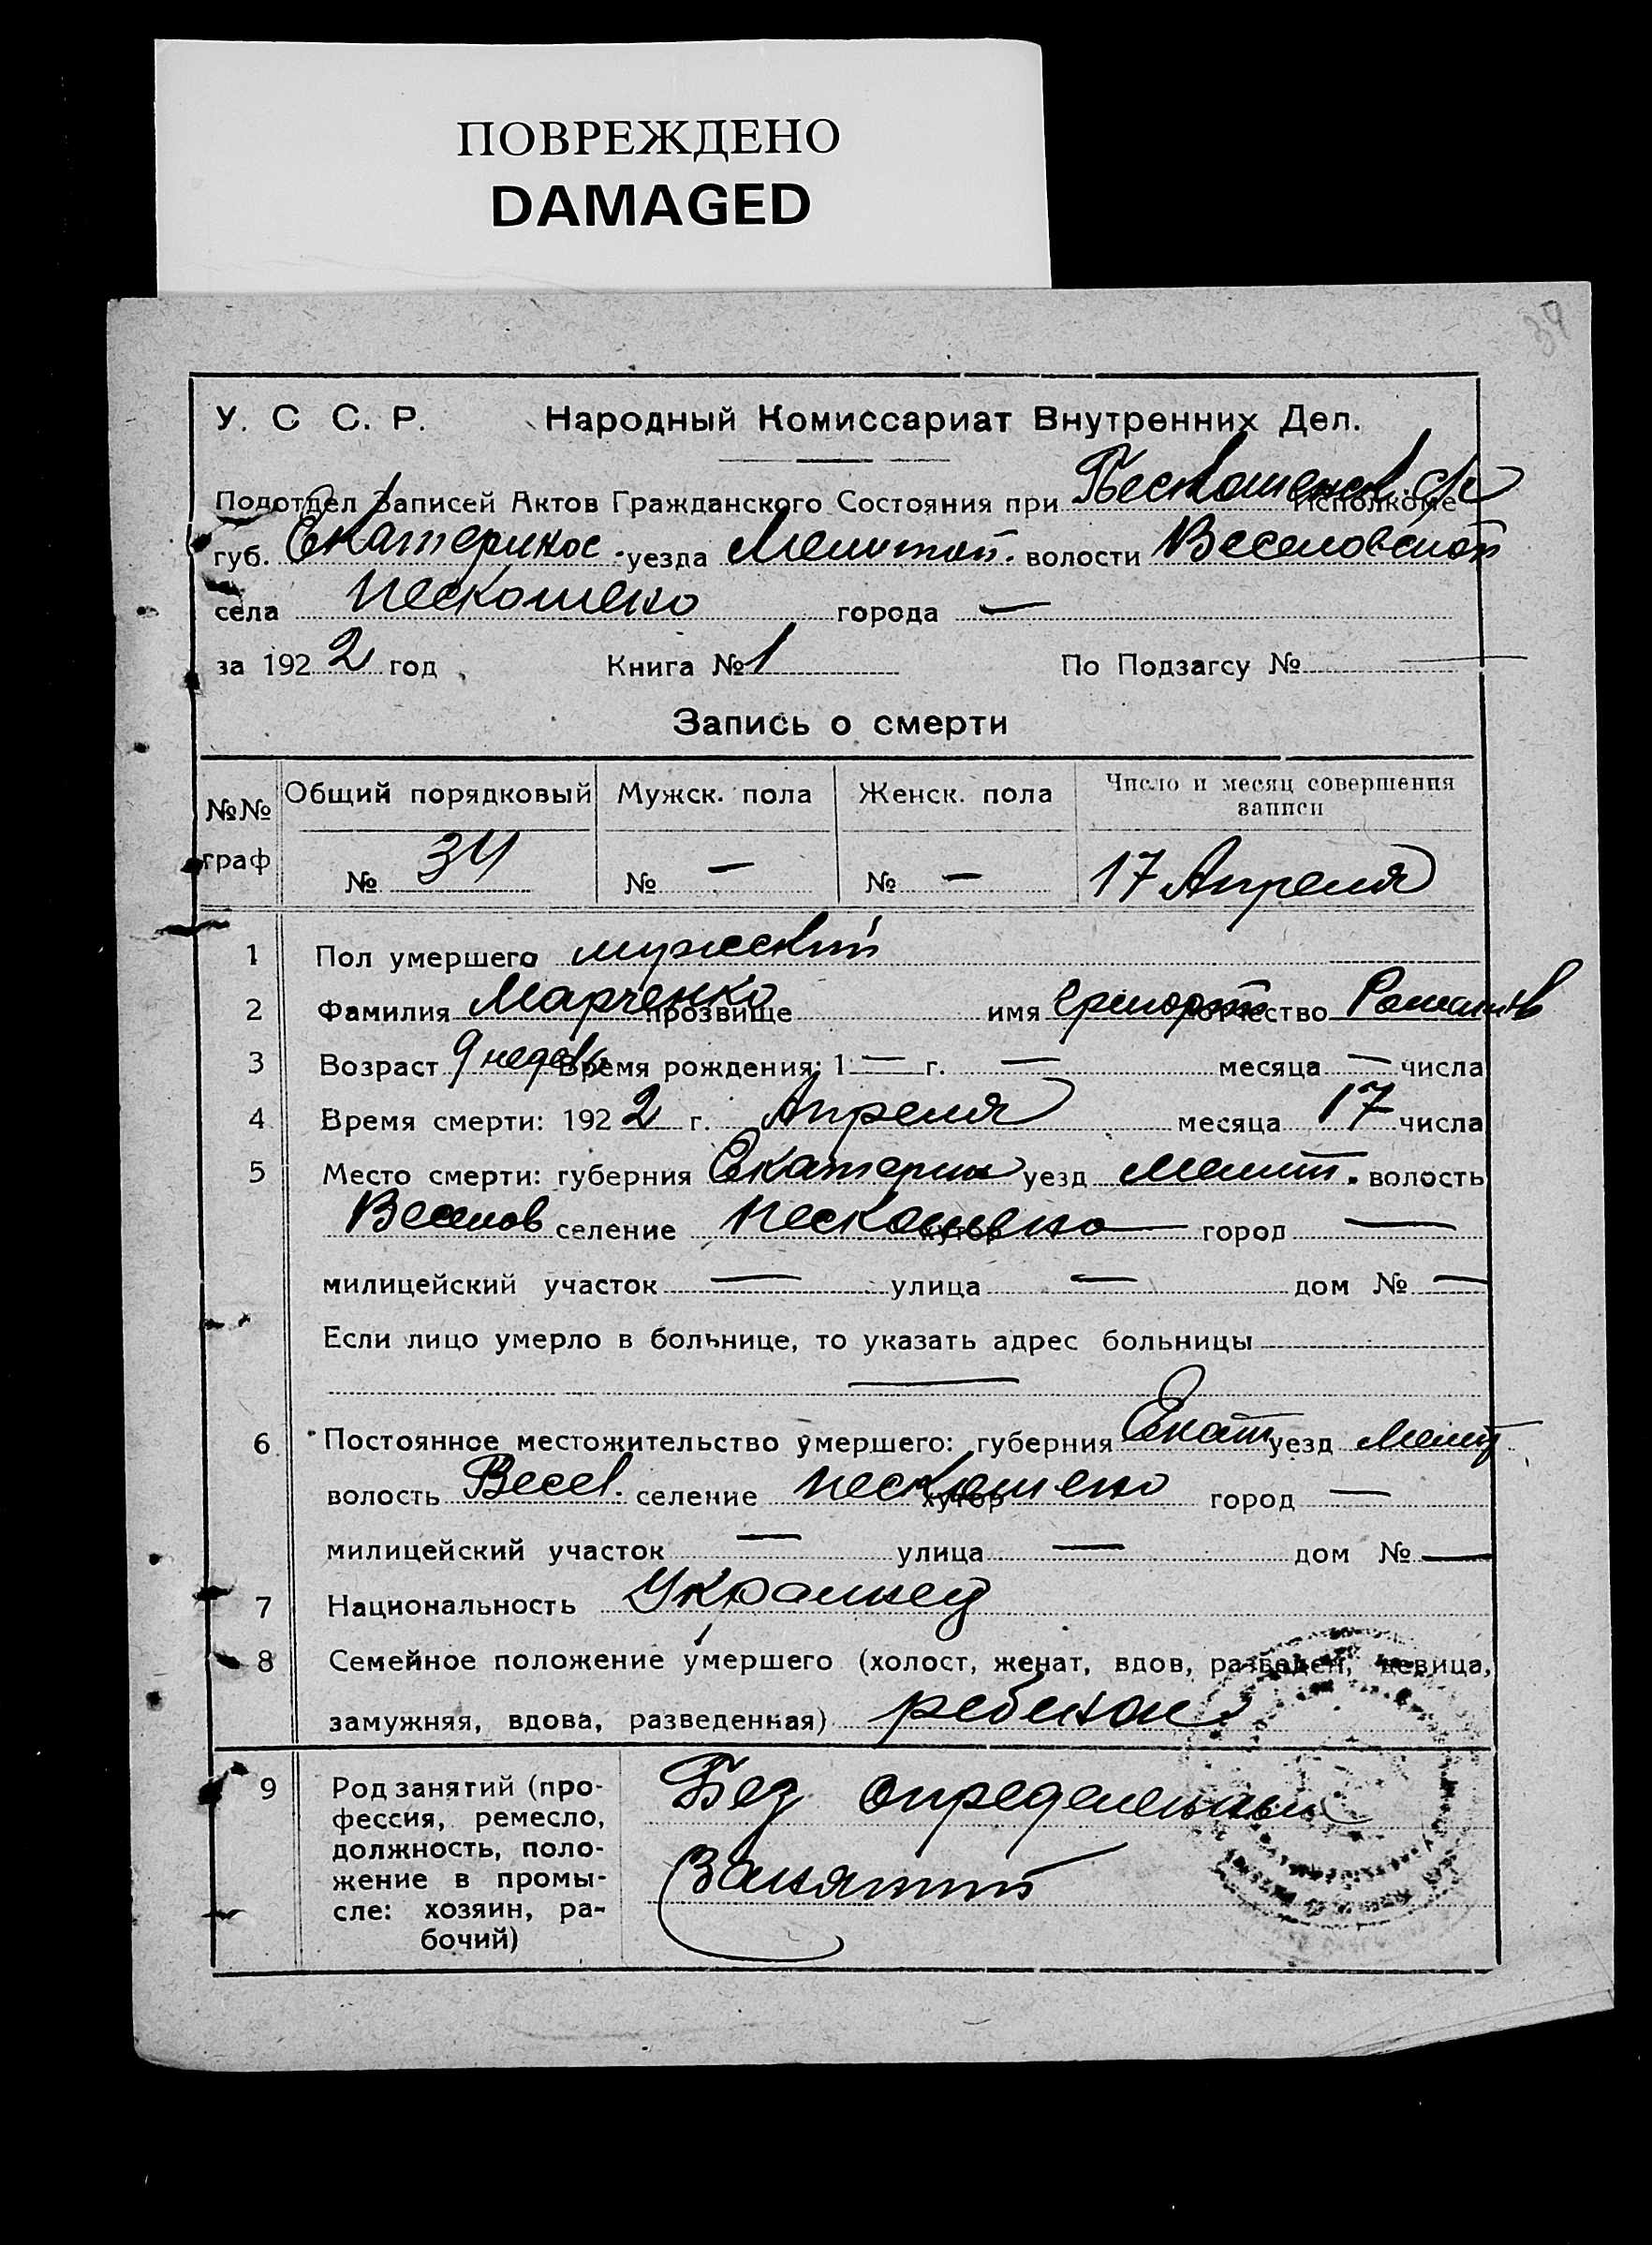 ПОВРЕЖДЕНО
DAMAGED
39
У. С С. Р. Народный Комиссариат Внутренних Дел.
Подотдел Записей Актов Гражданского Состояния при Исполкоме
губ. Екатеринос. уезда Мелитоп. волости Веселовской
села Пескошено города —
за 1922 год Книга № 1 По Подзагсу № —
Запись о смерти
№№ граф Общий порядковый Мужск. пола Женск. пола Число и месяц совершения записи
№ 34 № — № — 17 Апреля
1 Пол умершего мужский
2 Фамилия Марченко прозвище имя отчество
3 Возраст 9 недель Время рождения: 1 — г. — месяца — числа
4 Время смерти: 1922 г. Апреля месяца 17 числа
5 Место смерти: губерния Екатерин уезд Мелит. волость
Веселов селение Пескошено хутор город —
милицейский участок — улица — дом № —
Если лицо умерло в больнице, то указать адрес больницы
—
6 Постоянное местожительство умершего: губерния Екат уезд Мелит
волость Весел. селение Пескошено хутор город —
милицейский участок — улица — дом № —
7 Национальность Украинец
8 Семейное положение умершего (холост, женат, вдов, разведен, девица,
замужняя, вдова, разведенная) ребенок
9 Род занятий (про-
фессия, ремесло,
должность, поло-
жение в промы-
сле: хозяин, ра-
бочий)
Без определенных
занятий